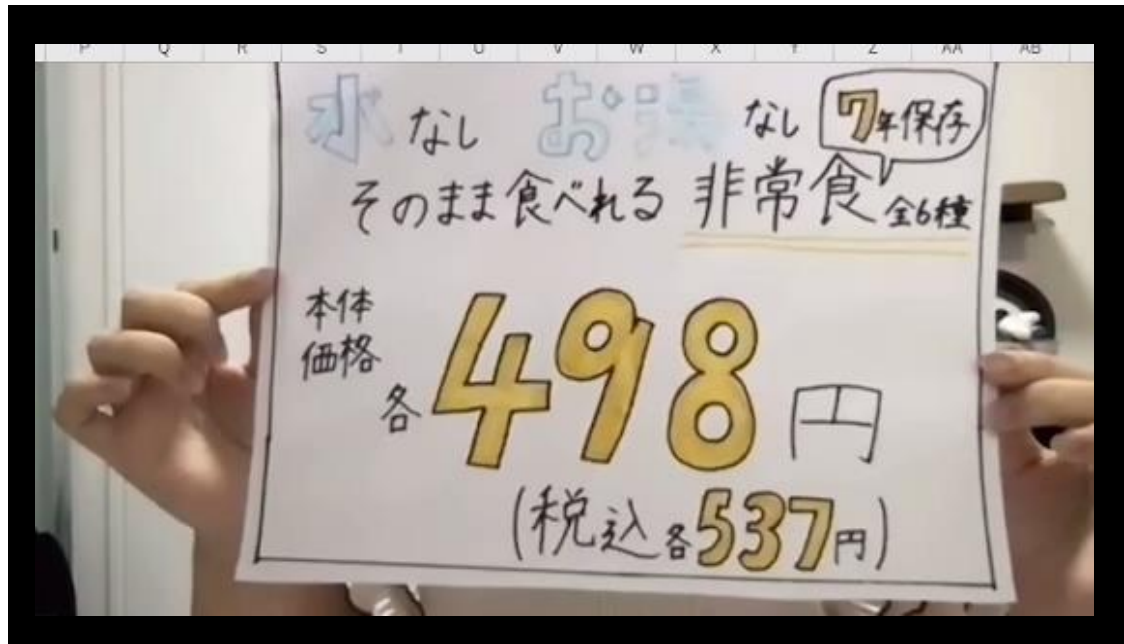 P Q R S T U V W X Y Z AA AB
水なし お湯なし 7年保存
そのまま食べれる 非常食 全6種
本体
価格
各498円
(税込各537円)